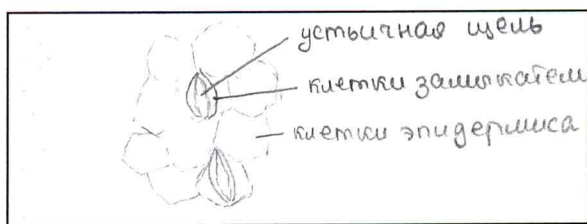 устьичная щель
клетки замыкатели
клетки эпидермиса